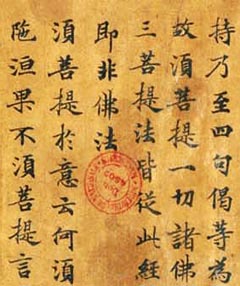 持乃至四句偈等為
故須菩提一切諸佛
三菩提法皆從此經
即非佛法
須菩提於意云何須
陁洹果不須菩提言